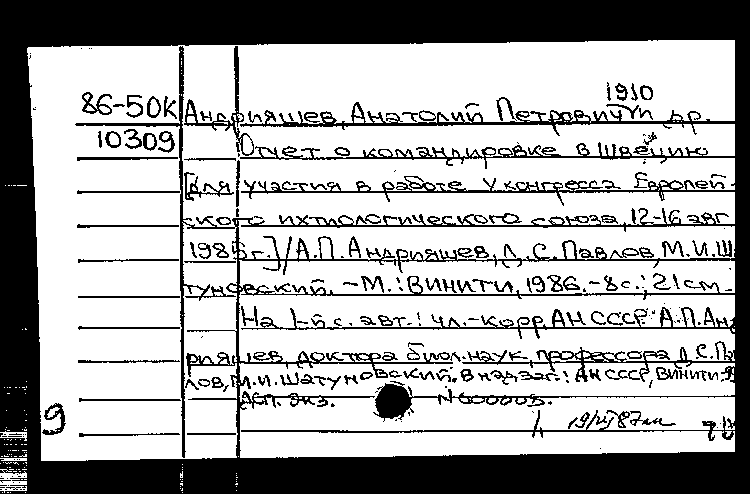 1910
86-50К Андрияшев, Анатолий Петрович и др.
10309 Отчет о командировке в Швецию
[для участия в работе V конгресса Европей-
ского ихтиологического союза, 12-16 авг
1985 г.] / А.П. Андрияшев, Д.С. Павлов, М.И. Ша
туновский. - М.: ВИНИТИ, 1986. - 8 с.; 21 см.
На 1-й с. авт.: чл.-корр. АН СССР А.П. Анд
рияшев, доктора биол. наук, профессора Д.С. Па
лов, М.И. Шатуновский. В надзаг.: АН СССР, ВИНИТИ
Деп. экз.
9